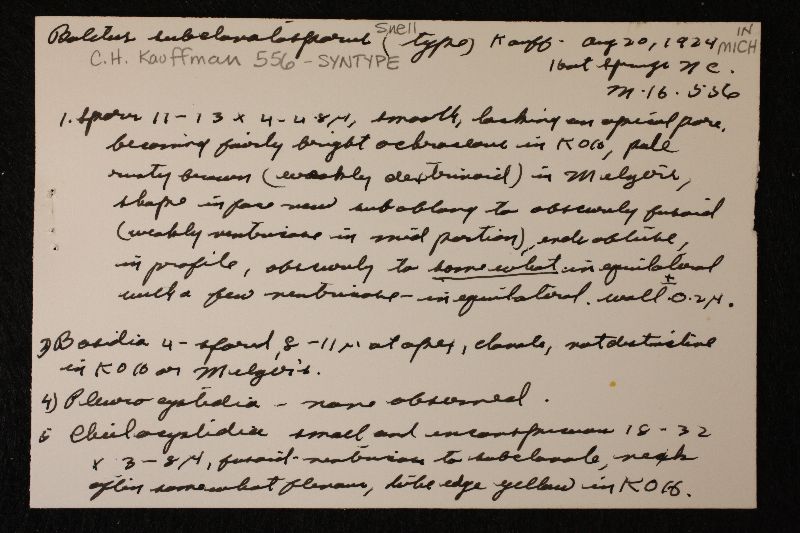 Boletus subclavatosporus Snell (type) Kauff. Aug 20, 1924 IN MICH
C.H. Kauffman 556 - SYNTYPE
Hot Springs N C.
M-16-556
1. Spores 11-13 x 4-4.8µ, smooth, lacking an apical pore,
becoming fairly bright ochraceous in KOH, pale
rusty brown (weakly dextrinoid) in Melzer's,
shape in face view suboblong to obscurely fusoid
(weakly ventricose in mid portion), ends obtuse,
in profile, obscurely to somewhat inequilateral
with a few ventricose-inequilateral. wall ± 0.2µ.
3) Basidia 4-spored, 8-11µ at apex, clavate, not distinctive
in KOH or Melzer's.
4) Pleurocystidia - none observed.
5 Cheilocystidia small and inconspicuous 18-32
x 3-8µ, fusoid-ventricose to subclavate, neck
often somewhat flexuous, tube edge yellow in KOH.